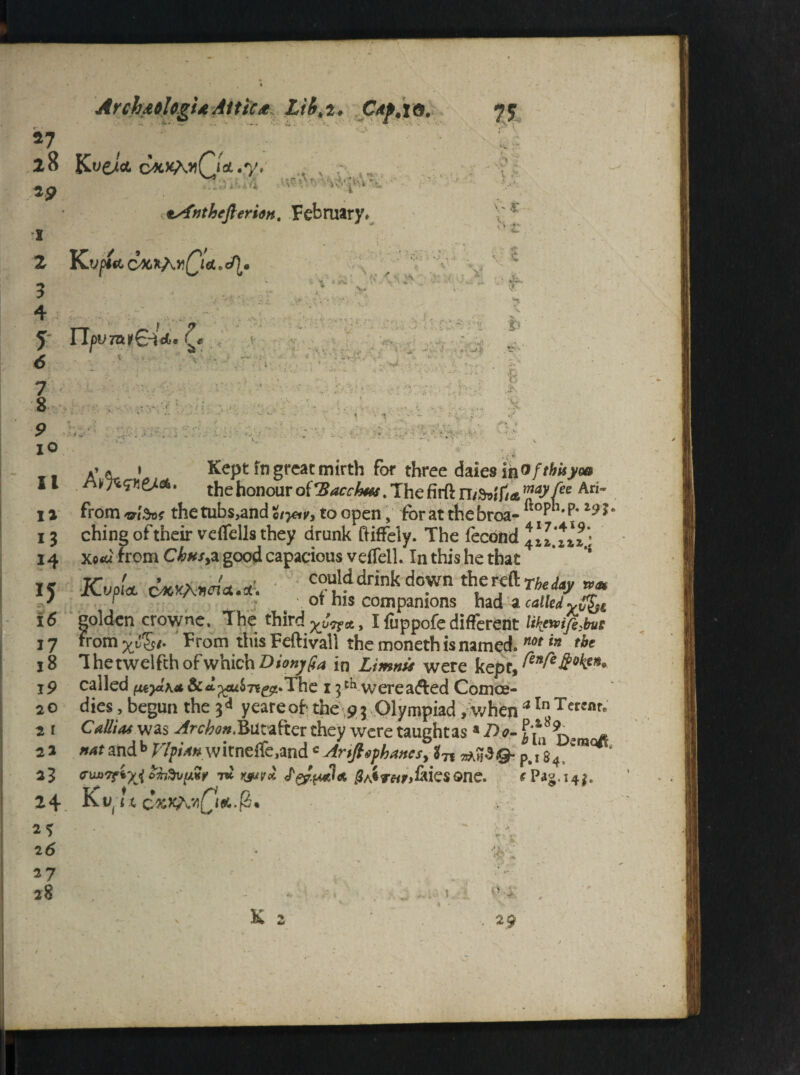 Archæologiæ Atticæ Lib.2. Cap.10. 75
27
28 Κυρία ἐκκλησία.γ.
29
Anthesterion. February.
1
2 Κυρία ἐκκλησία.δ.
3
4
5 Πρυτανεία. ζ.
6
7
8
9
10
11 Ανθεστήρια. Kept in great mirth for three daies in
the honour of Bacchus. The first πιθοιγία
12 from πίθος the tubs, and οἴγειν, to open, for at the broa-
13 ching of their vessells they drunk stiffely. The second
14 χοαὶ from Chus, a good capacious vessell. In this he that
15 Κυρία ἐκκλησία.α. could drink down the rest
of his companions had a
16 golden crowne. The third χύτρα, I suppose different
17 from χύτροι. From this Festivall the moneth is named.
18 The twelfth of which Dionysia in Limnis were kept,
19 called μεγάλα & ἀρχαιότερα. The 13th were acted Comœ-
20 dies, begun the 3d yeare of the 93 Olympiad, when
21 Callias was Archon. But after they were taught as a Do-
22 nat and b Vlpian witnesse, and c Aristophanes, ὅτι πλῆθος
23 τὰ δράματα saies one.
24 Κυρία ἐκκλησία.β.
25
26
27
28
K 2 29
of this you
may see Ari-
stoph. p. 293.
417.419.
The day was
called χύτροι
likewise, but
not in the
sense spoken.
a In Terent.
p. 289.
b In Demost.
p. 184.
c Pag. 143.